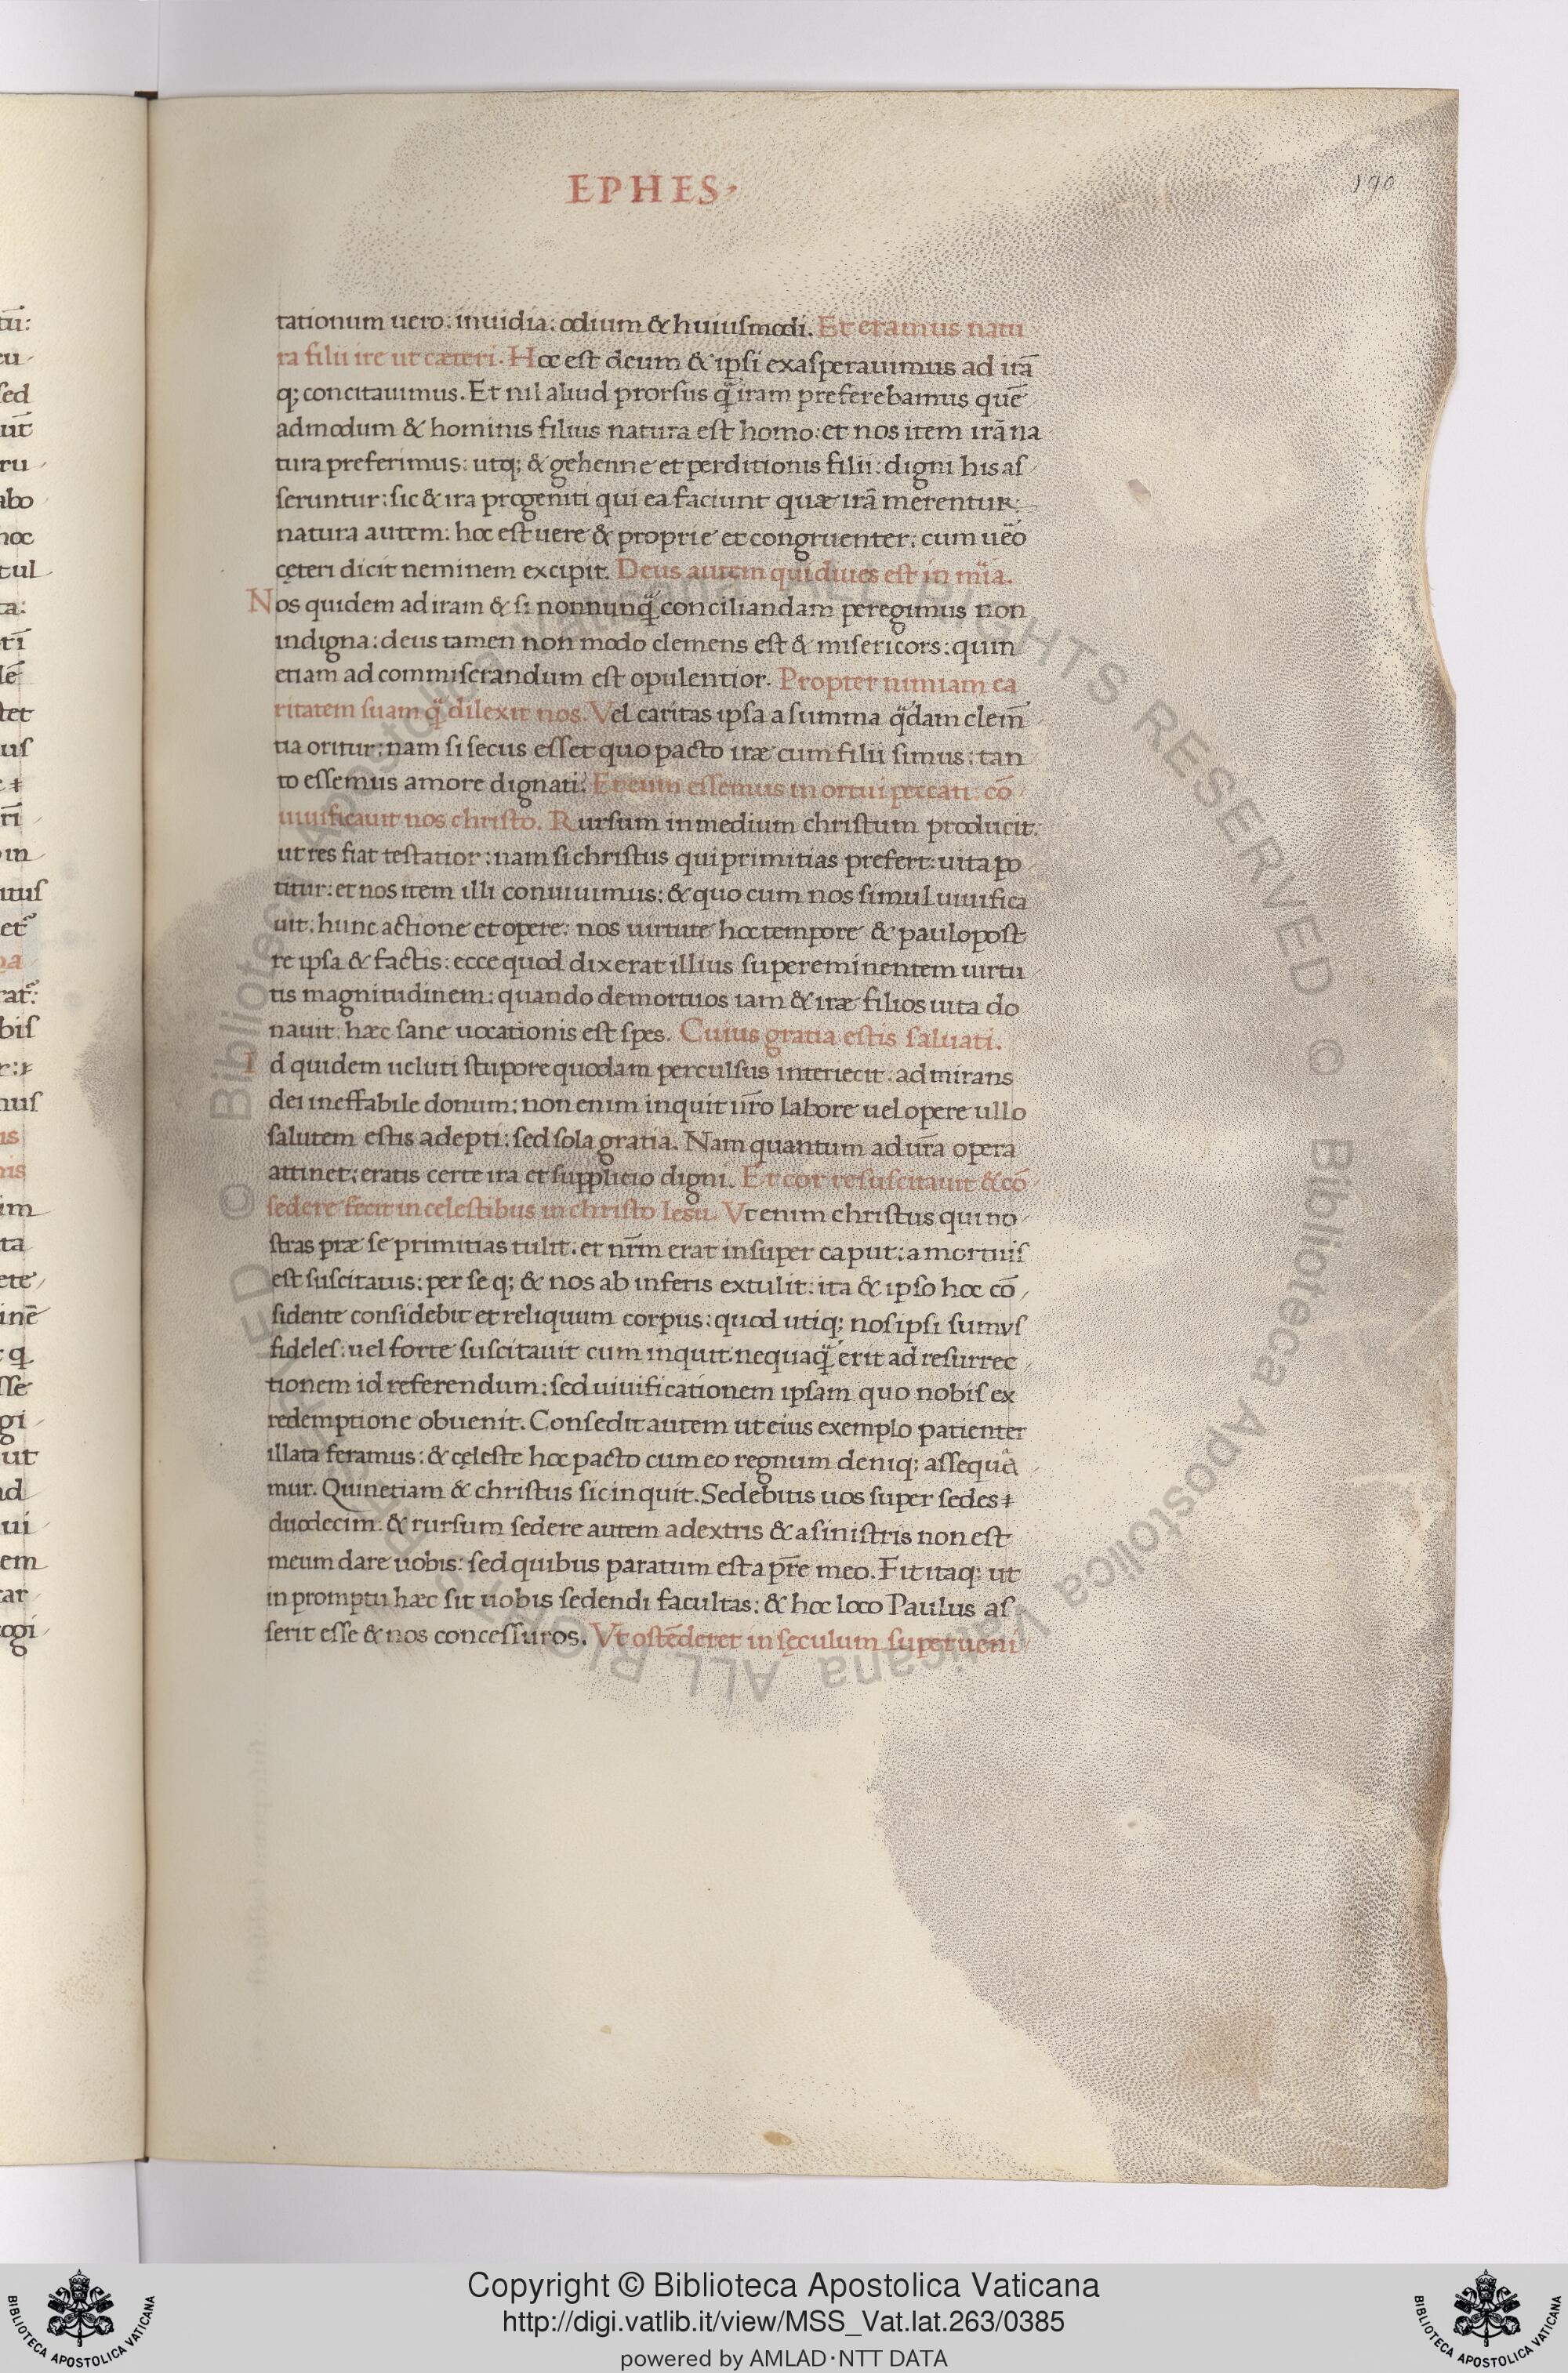 EPHES.
190
tationum uero: inuidia: odium & huiusmodi. Et eramus natu
ra filii ire ut cæteri. Hoc est deum & ipsi exasperauimus ad irā
q; concitauimus. Et nil aliud prorsus q̃ iram preferebamus quē
admodum & hominis filius natura est homo: et nos item irā na
tura preferimus: utq; & gehenne et perditionis filii: digni his as
seruntur: sic & ira progeniti qui ea faciunt quæ irā merentur:
natura autem: hoc est uere & proprie et congruenter: cum uēo
cęteri dicit neminem excipit. Deus autem qui diues est in mīa.
Nos quidem ad iram & si nonnunq̃ conciliandam peregimus non
indigna: deus tamen non modo clemens est & misericors: quin
etiam ad commiserandum est opulentior. Propter nimiam ca
ritatem suam q̃ dilexit nos. Vel caritas ipsa a summa q̃dam clem̄
tia oritur: nam si secus esset quo pacto iræ cum filii simus: tan
to essemus amore dignati? Et cum essemus mortui peccati: cō
uiuificauit nos christo. Rursum in medium christum producit:
ut res fiat testatior: nam si christus qui primitias prefert: uita po
titur: et nos item illi conuiuimus: & quo cum nos simul uiuifica
uit: hunc actione et opere: nos uirtute hoc tempore & paulo post
re ipsa & factis: ecce quod dixerat illius supereminentem uirtu
tis magnitudinem: quando demortuos iam & iræ filios uita do
nauit: hæc sane uocationis est spes. Cuius gratia estis saluati.
Id quidem ueluti stupore quodam perculsus interiecit: admirans
dei ineffabile donum: non enim inquit ūro labore uel opere ullo
salutem estis adepti: sed sola gratia. Nam quantum ad ūra opera
attinet: eratis certe ira et supplicio digni. Et cor resuscitauit & cō
sedere fecit in celestibus in christo Iesu. Vt enim christus qui no
stras præ se primitias tulit: et nr̄m erat insuper caput: a mortuis
est suscitatus: per se q; & nos ab inferis extulit: ita & ipso hoc cō
sidente considebit et reliquum corpus: quod utiq; nos ipsi sumus
fideles: uel forte suscitauit cum inquit: nequaq̃ erit ad resurrec
tionem id referendum: sed uiuificationem ipsam quo nobis ex
redemptione obuenit. Consedit autem ut eius exemplo patienter
illata feramus: & cęleste hoc pacto cum eo regnum deniq; assequā
mur. Quinetiam & christus sic inquit. Sedebitis uos super sedes
duodecim. & rursum sedere autem a dextris & a sinistris non est
meum dare uobis: sed quibus paratum est a pr̄e meo. Fit itaq; ut
in promptu hæc sit uobis sedendi facultas: & hoc loco Paulus as
serit esse & nos concessuros. Vt ostēderet in sęculum superueni
Copyright © Biblioteca Apostolica Vaticana
http://digi.vatlib.it/view/MSS_Vat.lat.263/0385
powered by AMLAD·NTT DATA
BIBLIOTECA APOSTOLICA VATICANA
BIBLIOTECA APOSTOLICA VATICANA